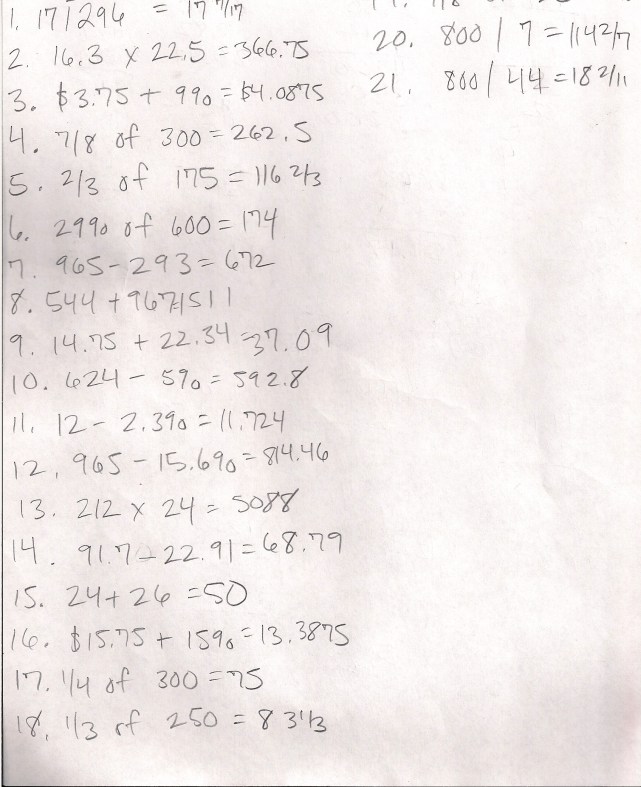 1. 17/296 = 17 7/17
2. 16.3 x 22.5 = 366.75
3. $3.75 + 9% = $4.0875
4. 7/8 of 300 = 262.5
5. 2/3 of 175 = 116 2/3
6. 29% of 600 = 174
7. 965 - 293 = 672
8. 544 + 967 = 1511
9. 14.75 + 22.34 = 37.09
10. 624 - 5% = 592.8
11. 12 - 2.3% = 11.724
12. 965 - 15.6% = 814.46
13. 212 x 24 = 5088
14. 91.7 - 22.91 = 68.79
15. 24 + 26 = 50
16. $15.75 + 15% = 13.3875
17. 1/4 of 300 = 75
18. 1/3 of 250 = 83 1/3
20. 800 / 7 = 114 2/7
21. 800 / 44 = 18 2/11